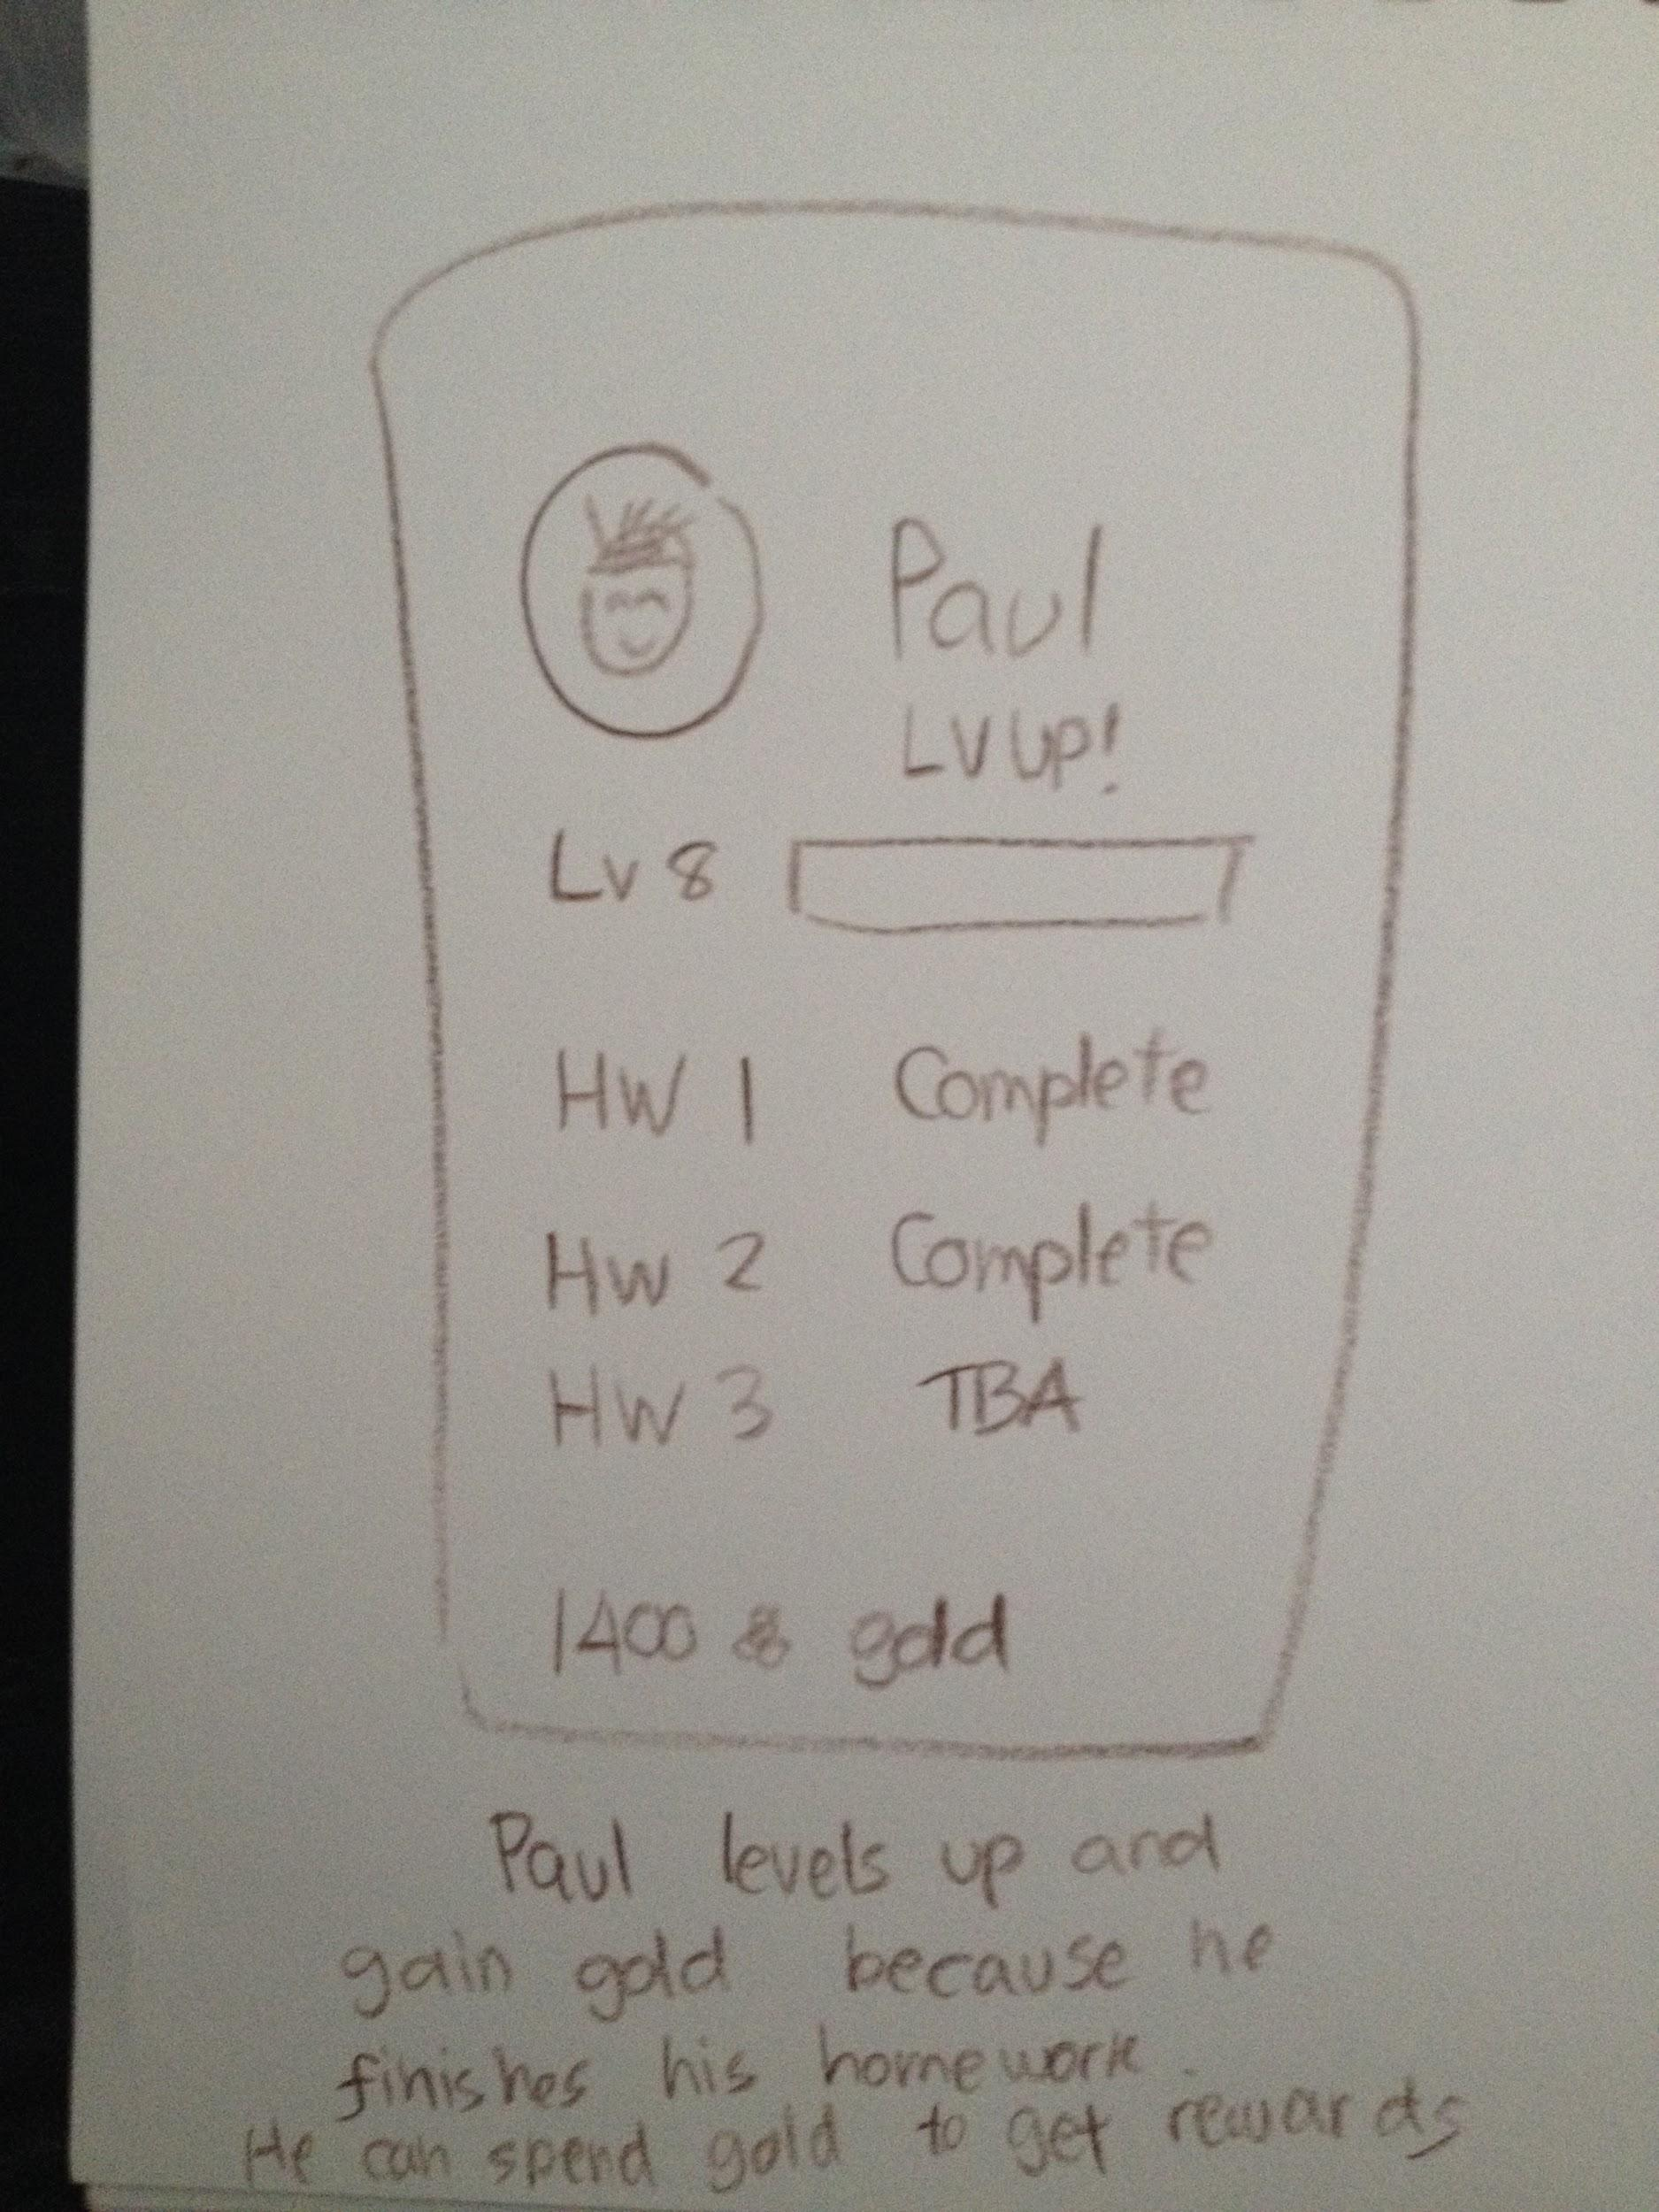 Paul
LV UP!
Lv 8
HW 1 Complete
HW 2 Complete
HW 3 TBA
1400 gold
Paul levels up and
gain gold because he
finishes his homework.
He can spend gold to get rewards